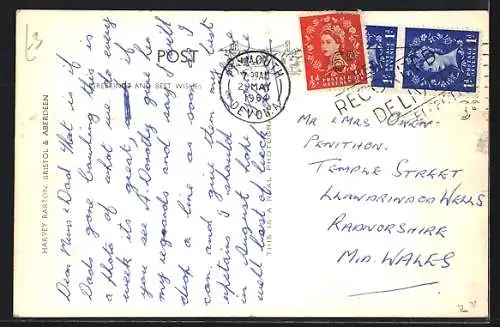 13
POST
GREETINGS AND BEST WISHES
HARVEY BARTON: BRISTOL & ABERDEEN
THIS IS A REAL PHOTOGRAPH
Dear Mum & Dad What is if
Dads gone bowling this is
a photo of what we do every
week its great, if
you see A. Dorothy give her
my regards and say I will
drop a line as soon as I
can and give them my best
upstains I should
in August take
well best of luck
PLYMOUTH
AM
MAY
1964
DEVON
POSTAGE
REVENUE
½D
1D
1D
MR & MRS OWEN.
PENITHON.
TEMPLE STREET
LLANDRINDOD WELLS
RADNORSHIRE
MID. WALES